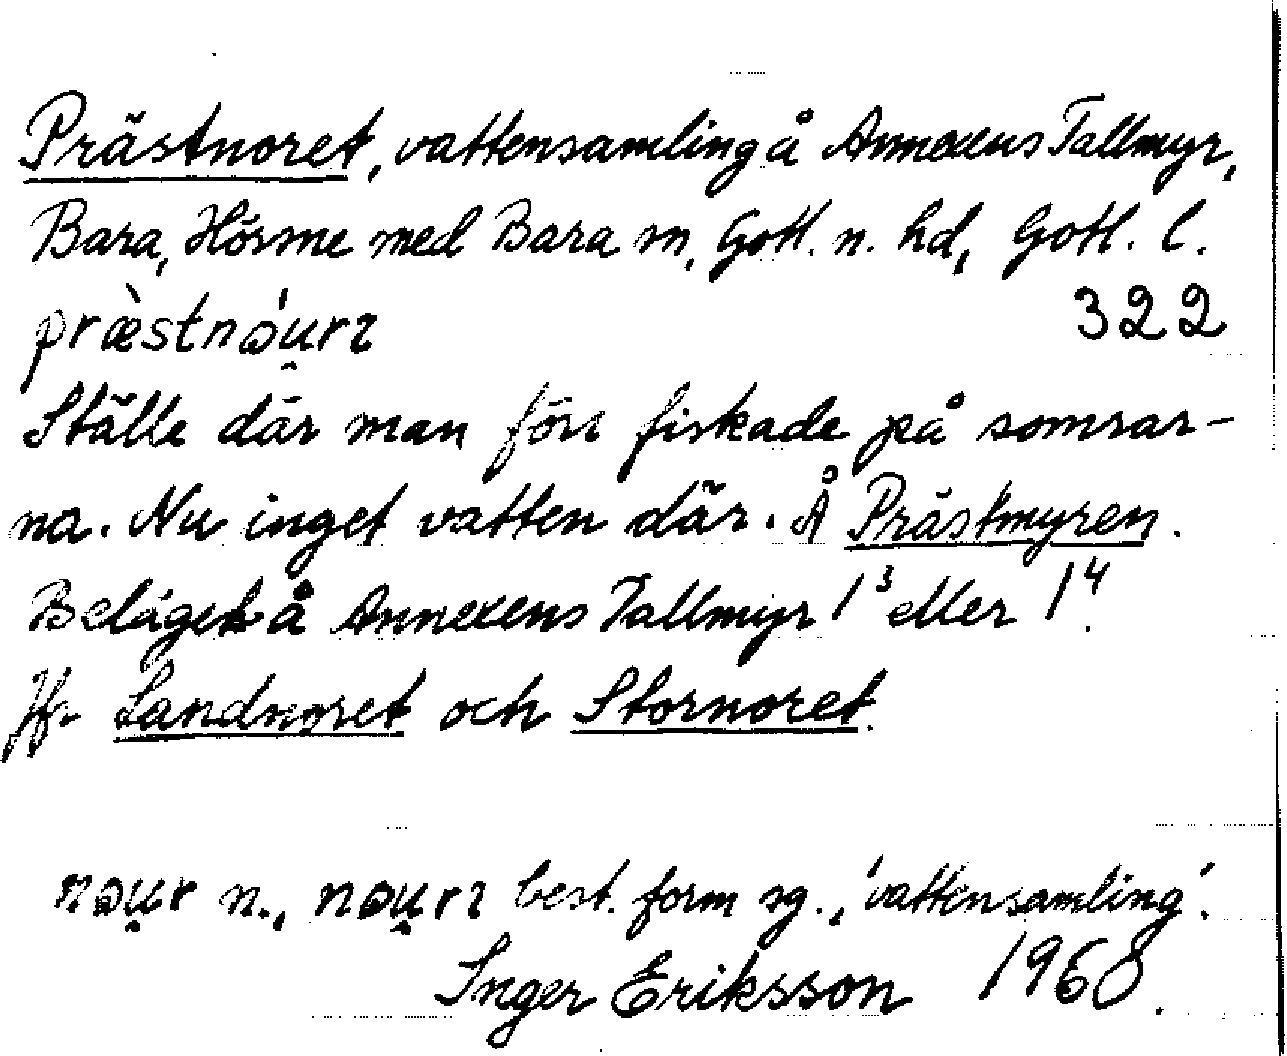 Prästnoret, vattensamling å Annexens Tallmyr,
Bara, Hörsne med Bara sn, Gotl. n. hd, Gotl. l.
præ̀stnǝ́u̯rɿ 322
Ställe där man förr fiskade på somrar-
na. Nu inget vatten där. Å Prästmyren.
Beläget å Annexens Tallmyr 1³ eller 1⁴.
Jfr Landnoret och Stornoret.
nǝu̯r n., nǝu̯rɿ best. form sg., 'vattensamling'.
Inger Eriksson 1968.